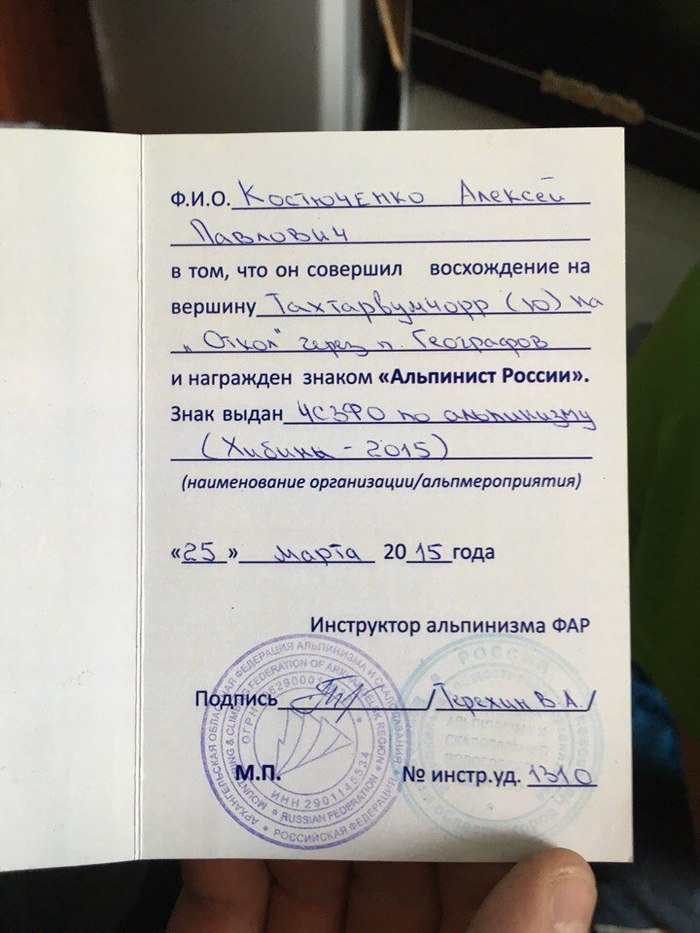 Ф.И.О. Костюченко Алексей
Павлович
в том, что он совершил восхождение на
вершину Тахтарвумчорр (ю) на
"Откол" через п. Географов
и награжден знаком «Альпинист России».
Знак выдан УСЗФО по альпинизму
(Хибины - 2015)
(наименование организации/альпмероприятия)
«25» марта 2015 года
Инструктор альпинизма ФАР
Подпись /Терехин В.А./
М.П. № инстр.уд. 1310
АРХАНГЕЛЬСКАЯ ОБЛАСТНАЯ ФЕДЕРАЦИЯ АЛЬПИНИЗМА И СКАЛОЛАЗАНИЯ
РОССИЙСКАЯ ФЕДЕРАЦИЯ
MOUNTAINEERING & CLIMBING FEDERATION OF ARKHANGELSK REGION
RUSSIAN FEDERATION
ИНН 2901145534